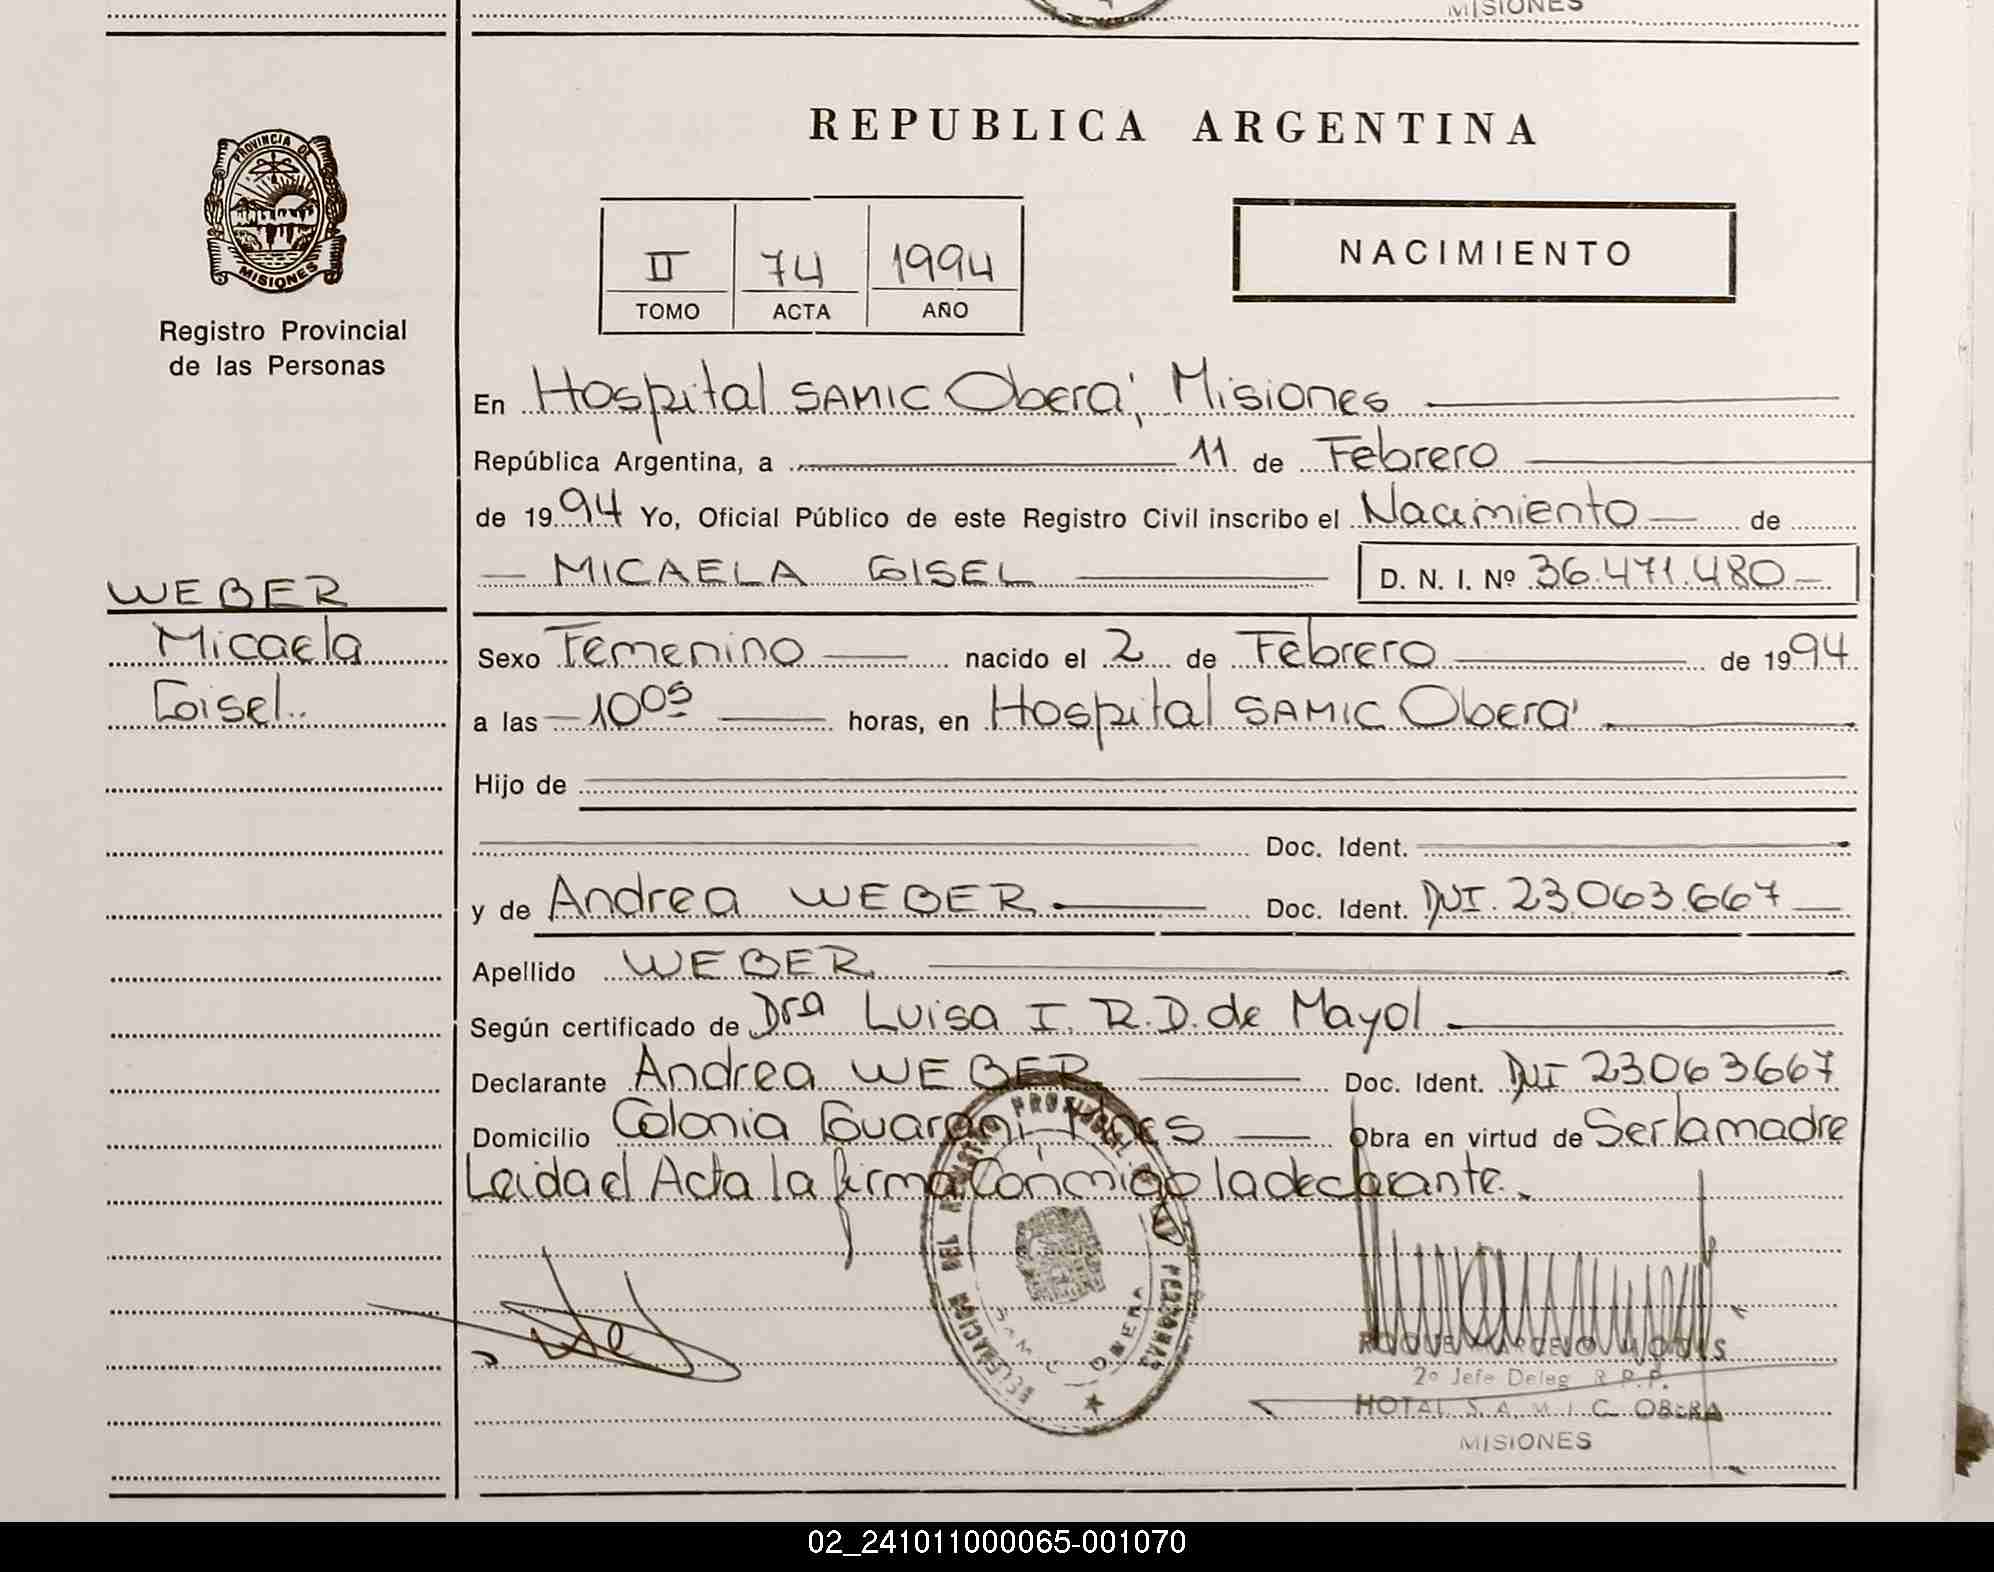 MISIONES
REPUBLICA ARGENTINA
PROVINCIA DE
MISIONES
Registro Provincial
de las Personas
II 74 1994
TOMO ACTA AÑO
NACIMIENTO
En Hospital SAMIC Oberá, Misiones
República Argentina, a 11 de Febrero
de 1994 Yo, Oficial Público de este Registro Civil inscribo el Nacimiento de
MICAELA GISEL D. N. I. Nº 36.471.480
WEBER
Micaela
Gisel..
Sexo Femenino nacido el 2 de Febrero de 1994
a las 10⁰⁵ horas, en Hospital SAMIC Oberá
Hijo de
Doc. Ident.
y de Andrea WEBER Doc. Ident. DNI. 23.063.667
Apellido WEBER
Según certificado de Dra Luisa I. R. D. de Mayol
Declarante Andrea WEBER Doc. Ident. DNI 23063667
Domicilio Colonia Guaraní, Mnes Obra en virtud de Ser la madre
Leida el Acta la firma Conmigo la declarante.
2º Jefe Deleg R.P.P.
HOTAL S.A.M.I.C. OBERA
MISIONES
02_241011000065-001070